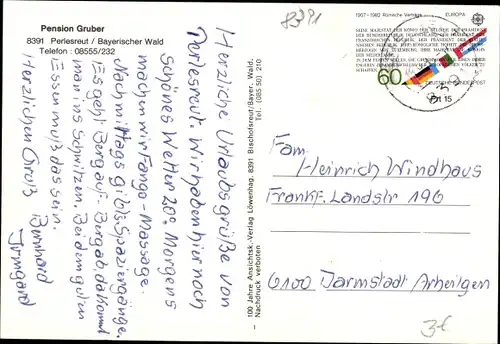 Pension Gruber
8391 Perlesreut / Bayerischer Wald
Telefon: 08555/232
8391
Herzliche Urlaubsgrüße von
Perlesreut. Wir haben hier noch
schönes Wetter 20° Morgens
machen wir Fango-Massage.
Nachmittags gibts Spaziergänge.
Es geht Bergauf-Bergab, da kommt
man ins Schwitzen. Bei dem guten
Essen muß das sein.
Herzlichen Gruß
Bernhard
Irmgard
100 Jahre Ansichtsk.-Verlag Löwenhag, 8391 Bischofsreut/Bayer. Wald,
Nachdruck verboten
Tel. (085 50) 210
1
1957-1982 Römische Verträge
EUROPA
60
DEUTSCHE BUNDESPOST
Fam.
Heinrich Windhaus
Frankf. Landstr 196
6100 Darmstadt Arheilgen
3€